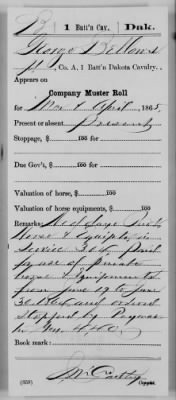 B | 1 Batt'n Cav. | Dak.
George Bellows
Pvt, Co. A, 1 Batt'n Dakota Cavalry.
Appears on
Company Muster Roll
for Mar & April, 1865.
Present or absent Present
Stoppage, $ 100
Due Gov't, $ 100
Valuation of horse, $ 100
Valuation of horse equipments, $ 100
Remarks: Private
Horse & Equipts in
service
use of private
horse & Equipments
from June 19 to June
30 and
stopped by Paymas
Book mark:
McCarthy
(358) Copyist.